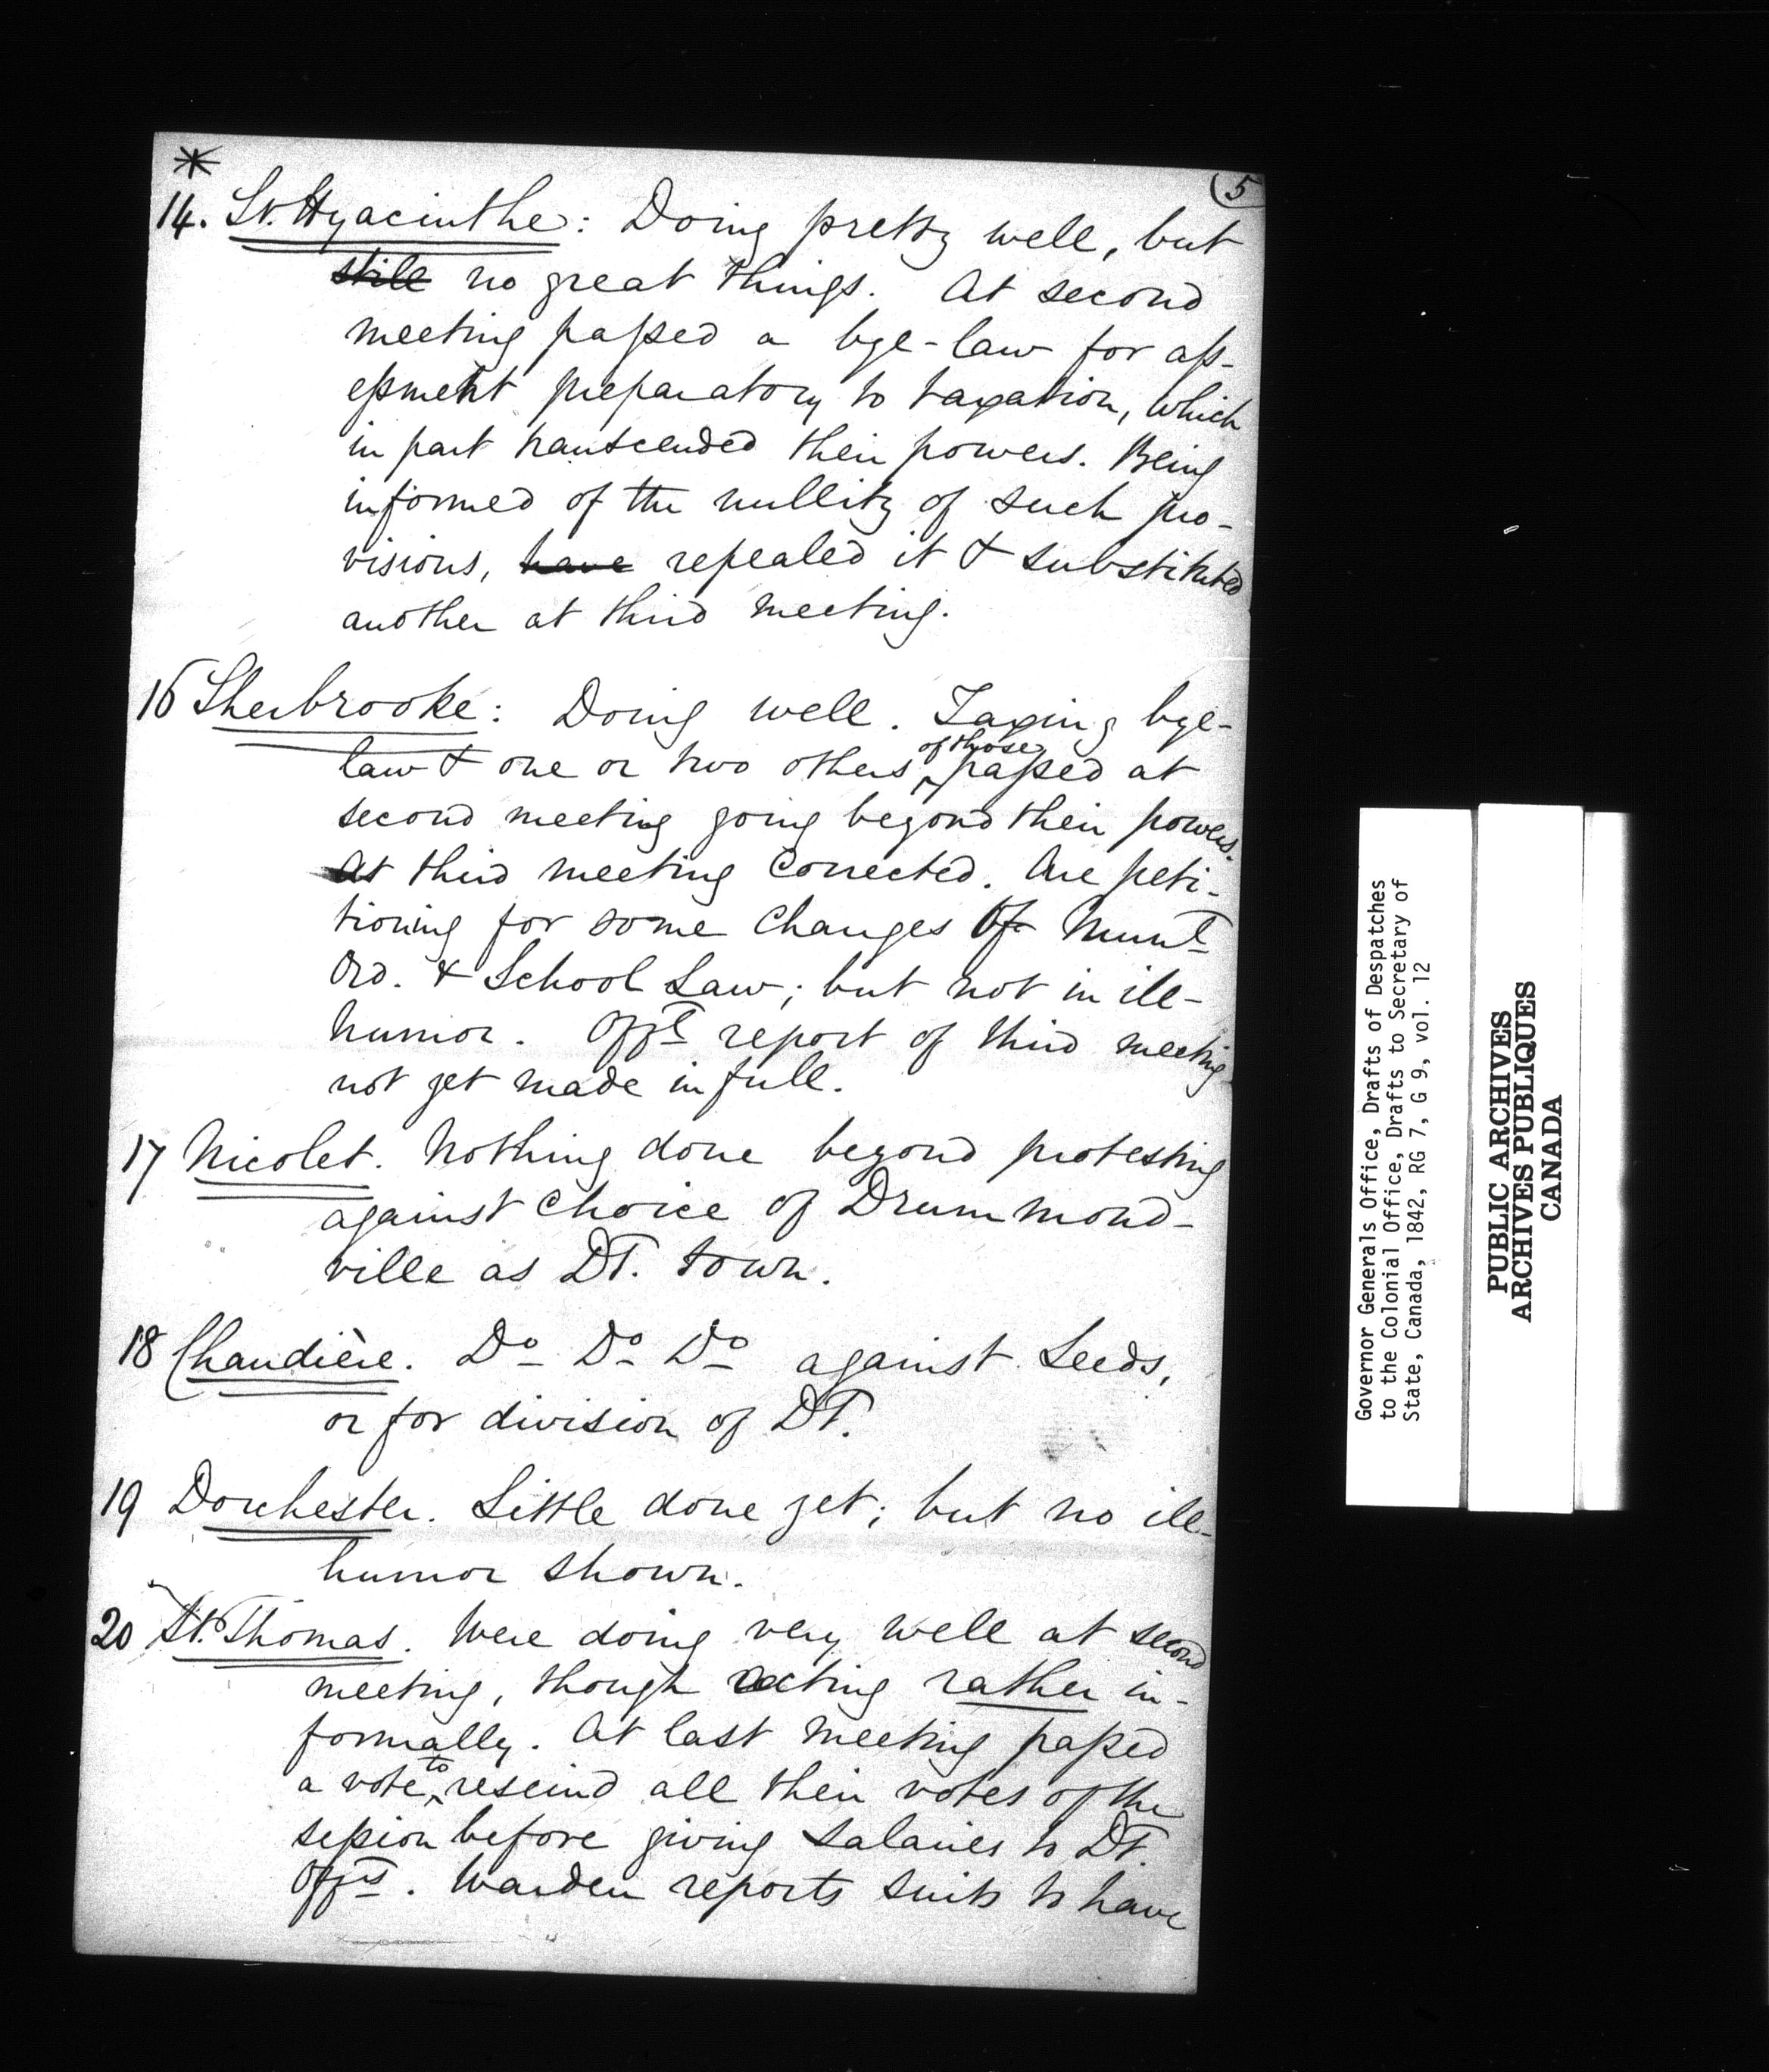 *
(5
14. St. Hyacinthe: Doing pretty well, but
still no great things. At second
meeting passed a bye-law for ass-
essment preparatory to taxation, which
in part transcended their powers. Being
informed of the nullity of such pro-
visions, have repealed it & substituted
another at third meeting.
16 Sherbrooke: Doing well. Taxing bye-
law & one or two others, of those passed at
second meeting going beyond their powers.
At third meeting corrected. Are peti-
tioning for some changes of Munl
Ord. & School Law; but not in ill-
humor. Offl report of third meeting
not yet made in full.
17 Nicolet. Nothing done beyond protesting
against choice of Drummond-
ville as DT. town.
18 Chaudière. Do Do Do against Leeds,
or for division of DT.
19 Dorchester. Little done yet; but no ill-
humor shown.
20 St. Thomas. Were doing very well at second
meeting, though acting rather in-
formally. At last meeting passed
a vote to rescind all their votes of the
session before giving salaries to DT.
Offrs. Warden reports suits to have
Governor Generals Office, Drafts of Despatches
to the Colonial Office, Drafts to Secretary of
State, Canada, 1842, RG 7, G 9, vol. 12
PUBLIC ARCHIVES
ARCHIVES PUBLIQUES
CANADA